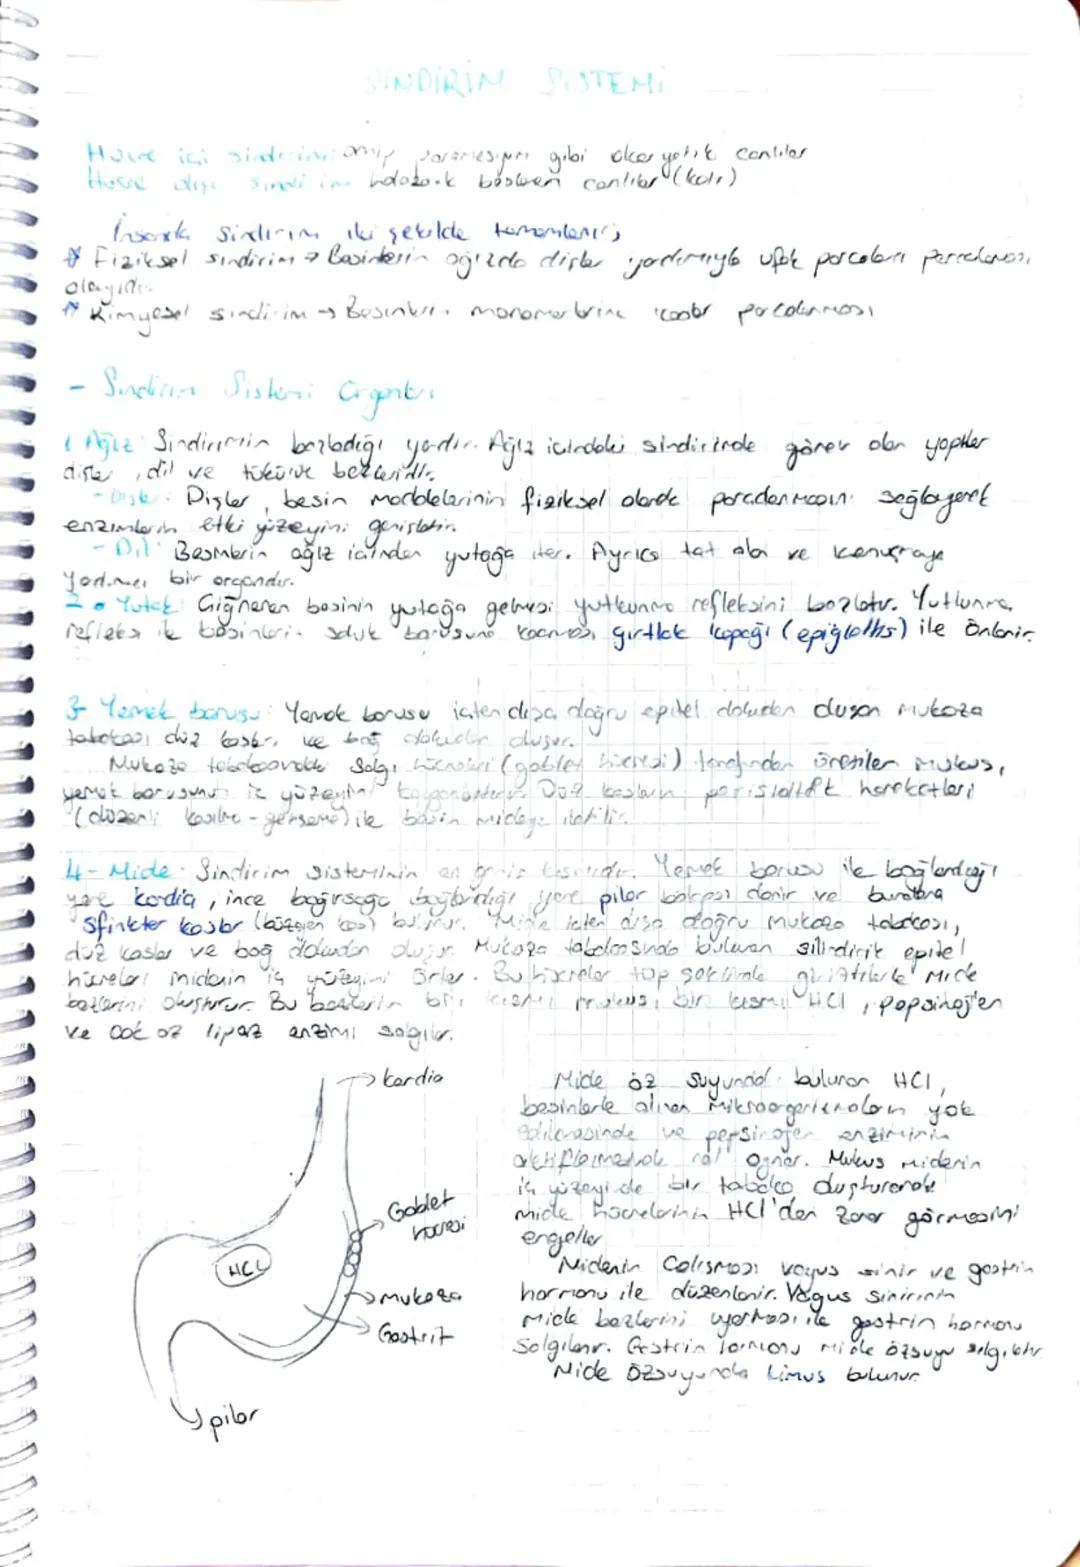 SİNDİRİM SİSTEMİ
Hücre içi sindirim: amip paramesyum gibi ökaryotik canlılar
Hücre dışı sindirim holozoik beslenen canlılar (katı)
İnsanda sindirim iki şekilde tamamlanır;
Fiziksel sindirim → Besinlerin ağızda dişler yardımıyla ufak parçaları parçalanması
olayıdır.
Kimyasal sindirim → Besinlerin monomerlerine kadar parçalanması
- Sindirim Sistemi Organları
1 Ağız: Sindirimin başladığı yerdir. Ağız içindeki sindirimde görev alan yapılar
dişler, dil ve tükürük bezleridir.
- Dişler: Dişler, besin maddelerinin fiziksel olarak parçalanmasını sağlayarak
enzimlerin etki yüzeyini genişletir.
- Dil: Besinlerin ağız içinden yutağa iter. Ayrıca tat alma ve konuşmaya
yardımcı bir organdır.
2 - Yutak: Çiğnenen besinin yutağa gelmesi yutkunma refleksini başlatır. Yutkunma
refleksi ile besinlerin soluk borusuna kaçması gırtlak kapağı (epiglottis) ile önlenir.
3- Yemek borusu: Yemek borusu içten dışa doğru epitel dokudan oluşan mukoza
tabakası düz kaslar ve bağ dokudan oluşur.
Mukoza tabakasındaki salgı hücreleri (goblet hücresi) tarafından üretilen mukus,
yemek borusunun iç yüzeyini kayganlaştırır. Düz kasların peristaltik hareketleri
(düzenli kasılma - gevşeme) ile besin mideye iletilir.
4- Mide: Sindirim sisteminin en geniş kısmıdır. Yemek borusu ile bağlandığı
yere kardia, ince bağırsağa bağlandığı yere pilor bölgesi denir ve buralara
sfinkter kaslar (büzgen kas) bulunur. Mide içten dışa doğru mukoza tabakası,
düz kaslar ve bağ dokudan oluşur. Mukoza tabakasında bulunan silindirik epitel
hücreler midenin iç yüzeyini örter. Bu hücreler tüp şeklinde girintilerle mide
bezlerini oluşturur. Bu bezlerin bir kısmı mukus, bir kısmı HCl, pepsinojen
ve çok az lipaz enzimi salgılar.
kardia
Goblet
hücresi
HCL
mukoza
Gastrit
pilor
Mide öz suyunda bulunan HCl,
besinlerle alınan mikroorganizmaların yok
edilmesinde ve pepsinojen enziminin
aktifleşmesinde rol oynar. Mukus midenin
iç yüzeyinde bir tabaka oluşturarak
mide hücrelerinin HCl'den zarar görmesini
engeller
Midenin Çalışması vagus sinir ve gastrin
hormonu ile düzenlenir. Vagus sinirinin
mide bezlerini uyarması ile gastrin hormonu
salgılanır. Gastrin hormonu mide özsuyu salgılatır
Mide Özsuyunda Limus bulunur.